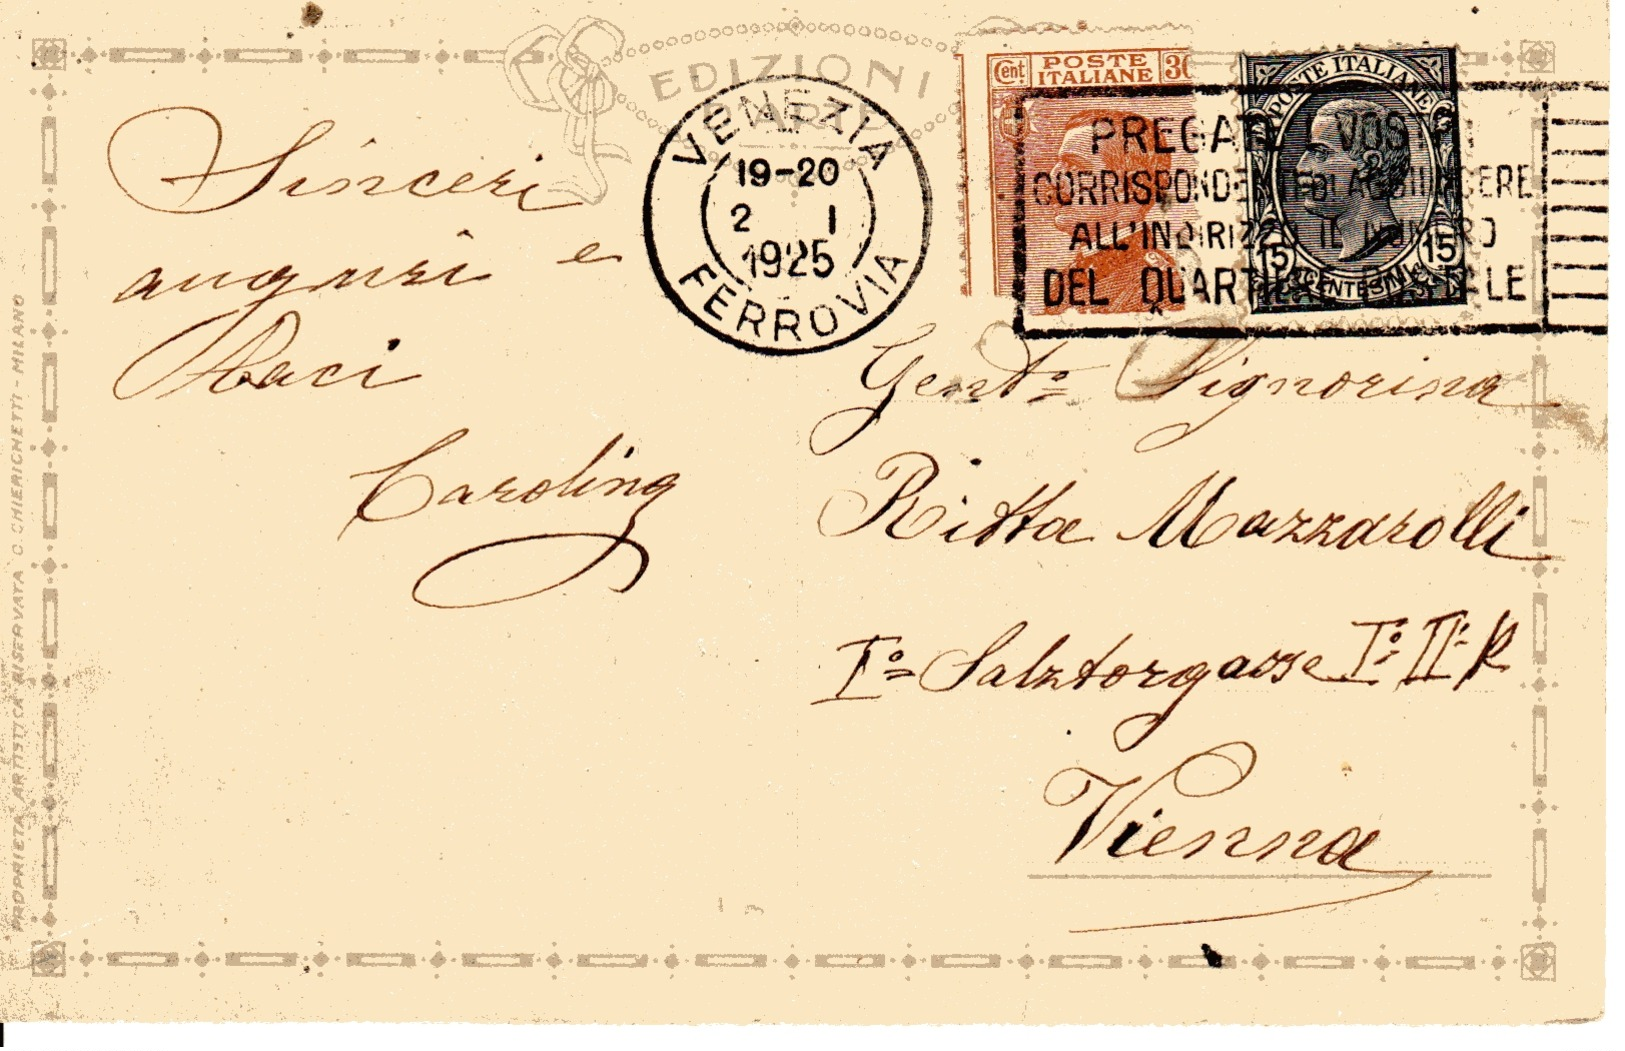 EDIZIONI
D'ARTE
VENEZIA
19-20
2 I
1925
FERROVIA
Cent POSTE 30
ITALIANE
POSTE ITALIANE
15 15
CENTESIMI
PREGATE I VOSTRI
CORRISPONDENTI DI AGGIUNGERE
ALL'INDIRIZZO IL NUMERO
DEL QUARTIERE POSTALE
Sinceri
auguri e
Baci
Carolina
Gent.ª Signorina
Ritta Mazzarolli
I.º Salztorgasse I.º II.
Vienna
PROPRIETA ARTISTICA RISERVATA C. CHIERICHETTI - MILANO